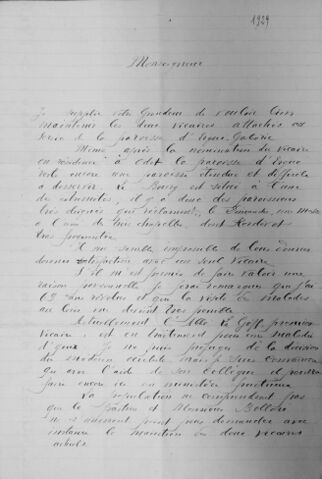 1929
Monseigneur
Je supplie votre Grandeur de vouloir bien
maintenir les deux vicaires attachés au
service de la paroisse d'Ergué-Gabéric
Même après la nomination du vicaire
en résidence à Odet la paroisse d'Ergué
reste encore une paroisse étendue et difficile
à desservir. Le Bourg est situé à l'une
des extrémités, il y a donc des paroissiens
très éloignés qui réclament, le Dimanche, une messe
à l'une de trois chapelles, dont Kerdévot
Il me semble impossible de leur donner
satisfaction avec un seul vicaire
S'il m'est permis de faire valoir une
raison personnelle je ferai remarquer que j'ai
62 ans révolus et que la visite des malades
au loin me devient très pénible
Actuellement l'Abbé Le Goff, premier
vicaire, est en traitement pour une maladie
d'yeux. Je ne puis préjuger de la décision
du médecin oculiste mais je suis convaincu
qu'avec l'aide de son collègue il pourra
faire encore ici un ministère fructueux
La population ne comprendrait pas
que le Pasteur et Monsieur Bolloré
ne s'unissent point pour demander avec
instance le maintien des deux vicaires
actuels.